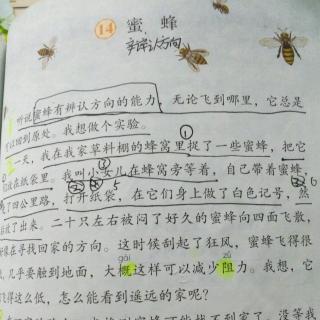 14 蜜蜂
辩认方向
听说蜜蜂有辨认方向的能力，无论飞到哪里，它总是
可以回到原处。我想做个实验。
一天，我在我家草料棚的蜂窝里捉了一些蜜蜂，把它
们放在纸袋里。我叫小女儿在蜂窝旁等着，自己带着蜜蜂，
了四公里路，打开纸袋，在它们身上做了白色记号，然
后放了出来。二十只左右被闷了好久的蜜蜂向四面飞散，
好像在寻找回家的方向。这时候刮起了狂风，蜜蜂飞得很
，几乎要触到地面，大概这样可以减少阻力。我想，它
飞得这么低，怎么能看到遥远的家呢？